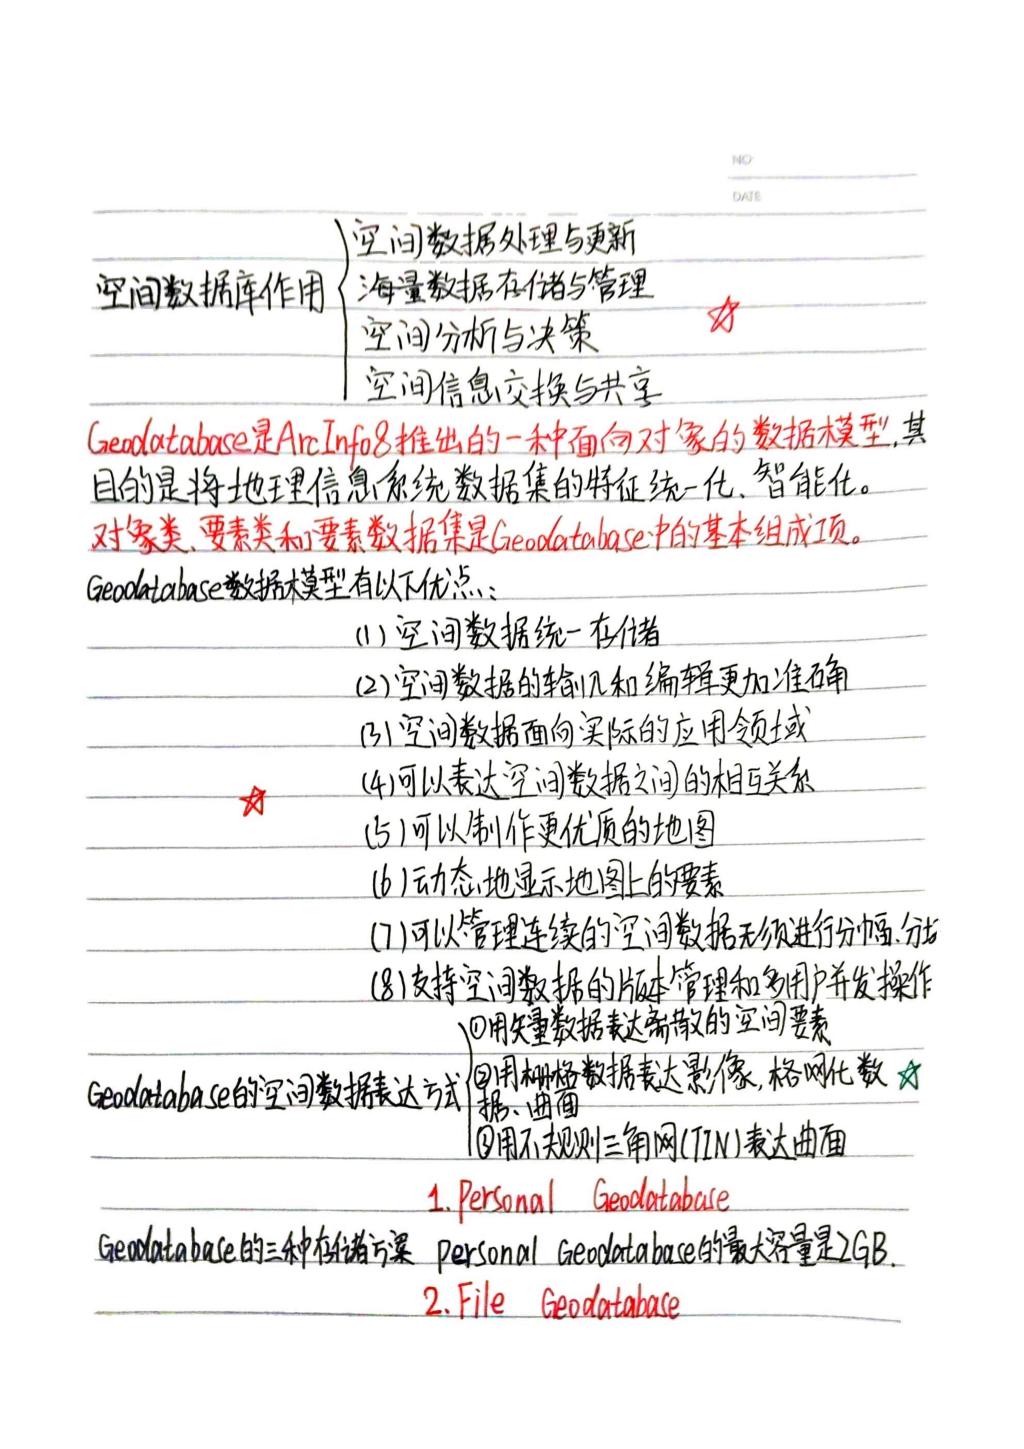 NO
DATE
空间数据库作用
空间数据处理与更新
海量数据存储与管理
空间分析与决策
空间信息交换与共享
Geodatabase是ArcInfo8推出的一种面向对象的数据模型,其
目的是将地理信息系统数据集的特征统一化、智能化。
对象类、要素类和要素数据集是Geodatabase中的基本组成项。
Geodatabase数据模型有以下优点:
(1)空间数据统一存储
(2)空间数据的输入和编辑更加准确
(3)空间数据面向实际的应用领域
(4)可以表达空间数据之间的相互关系
(5)可以制作更优质的地图
(6)动态地显示地图上的要素
(7)可以管理连续的空间数据无须进行分幅、分块
(8)支持空间数据的版本管理和多用户并发操作
Geodatabase的空间数据表达方式
①用矢量数据表达离散的空间要素
②用栅格数据表达影像,格网化数
据、曲面
③用不规则三角网(TIN)表达曲面
1.Personal Geodatabase
Geodatabase的三种存储方案 personal Geodatabase的最大容量是2GB.
2.File Geodatabase